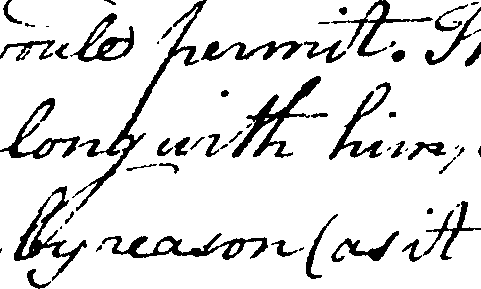 would permit.
long with him,
by reason (as it